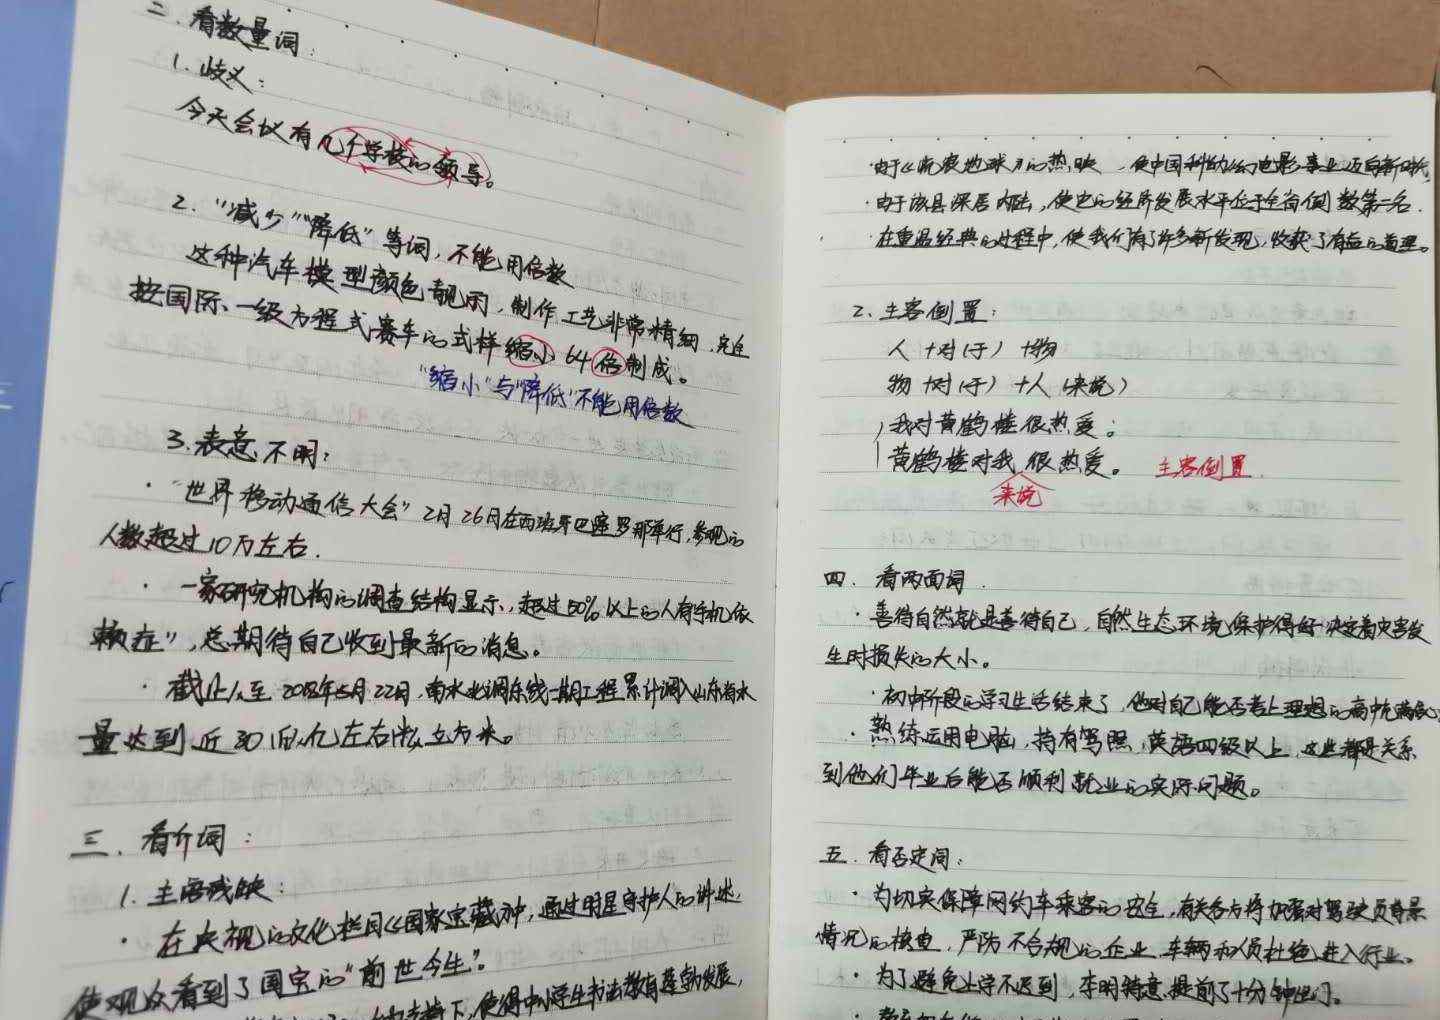 二、看数量词：
1. 歧义：
今天会议有几个学校的领导。
2. “减少”“降低”等词，不能用倍数
这种汽车模型颜色靓丽，制作工艺非常精细，完全
按国际一级方程式赛车的式样缩小64倍制成。
“缩小”与“降低”不能用倍数
3. 表意不明：
·“世界移动通信大会”2月26日在西班牙巴塞罗那举行，参观的
人数超过10万左右.
· 一家研究机构的调查结构显示，超过80%以上的人有手机依
赖症”，总期待自己收到最新的消息。
· 截止至2018年5月22日，南水北调东线一期工程累计调入山东省水
量达到近30亿左右立方米。
三、看介词：
1. 主语残缺：
· 在央视的文化栏目《国家宝藏》中，通过明星守护人的讲述，
使观众看到了国宝的“前世今生”。
支持下，使得中小学生书法教育蓬勃发展，
·由于《流浪地球》的热映，使中国科幻电影事业迈向新时代，
·由于该县深居内陆，使它的经济发展水平位于全省倒数第二名.
·在重温经典的过程中，使我们有了许多新发现，收获了有益的道理。
2. 主客倒置：
人+对(于)+物
物+对(于)+人(来说)
我对黄鹤楼很热爱；
黄鹤楼对我很热爱。 主客倒置
来说
四、看两面词.
·善待自然就是善待自己，自然生态环境保护得好决定着灾害发
生时损失的大小。
·初中阶段的学习生活结束了，他对自己能否考上理想的高中充满信心
·熟练运用电脑，持有驾照，英语四级以上，这些都是关系
到他们毕业后能否顺利就业的实际问题。
五、看否定词：
·为切实保障网约车乘客的安全，有关各方将加强对驾驶员背景
情况的核查，严防不合规的企业、车辆和人员杜绝进入行业。
·为了避免上学不迟到，李明特意提前了十分钟出门。